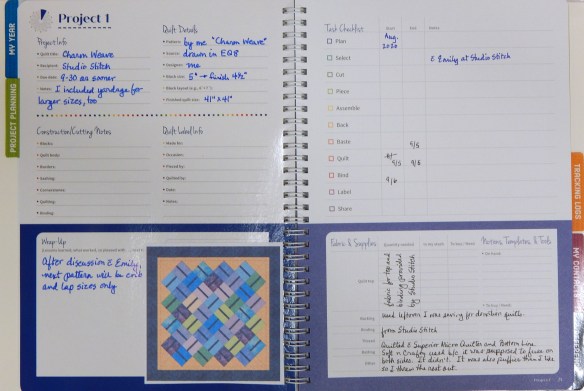 MY YEAR
PROJECT PLANNING
Project 1
Project Info
Quilt title: Charm Weave
Recipient: Studio Stitch
Due date: 9-30 or sooner
Notes: I included yardage for
larger sizes, too
Quilt Details
Pattern: by me "Charm Weave"
Source: drawn in EQ8
Designer: me
Block size: 5" → finish 4½"
Finished quilt size: 41" x 41"
Construction/Cutting Notes
Blocks:
Quilt body:
Borders:
Basting:
Cornerstones:
Quilting:
Binding:
Quilt Label Info
Made for:
Occasion:
Pieced by:
Quilted by:
Date:
Notes:
Wrap-Up
After discussion c Emily,
next pattern will be crib
and lap sizes only
Task Checklist
Start
End
Notes
Plan
Aug.
2020
Select
c Emily at Studio Stitch
Cut
Piece
Assemble
Back
Baste
9/5
Quilt
9/5
9/6
Bind
9/6
Label
Share
TRACKING LOGS
Fabric & Supplies
Quantity needed
In my stash
To buy / Have
Notions, Templates, & Tools
Quilt top
fabric for top and
binding provided
by Studio Stitch
Backing
used leftovers I was saving for donation quilts
Binding
from Studio Stitch
Thread
Quilted c Superior Micro Quilter and Bottom Line.
Soft n Crafty used b/c it was supposed to fuse on
both sides. It didn't. It was also puffier than I like
so I threw the rest out.